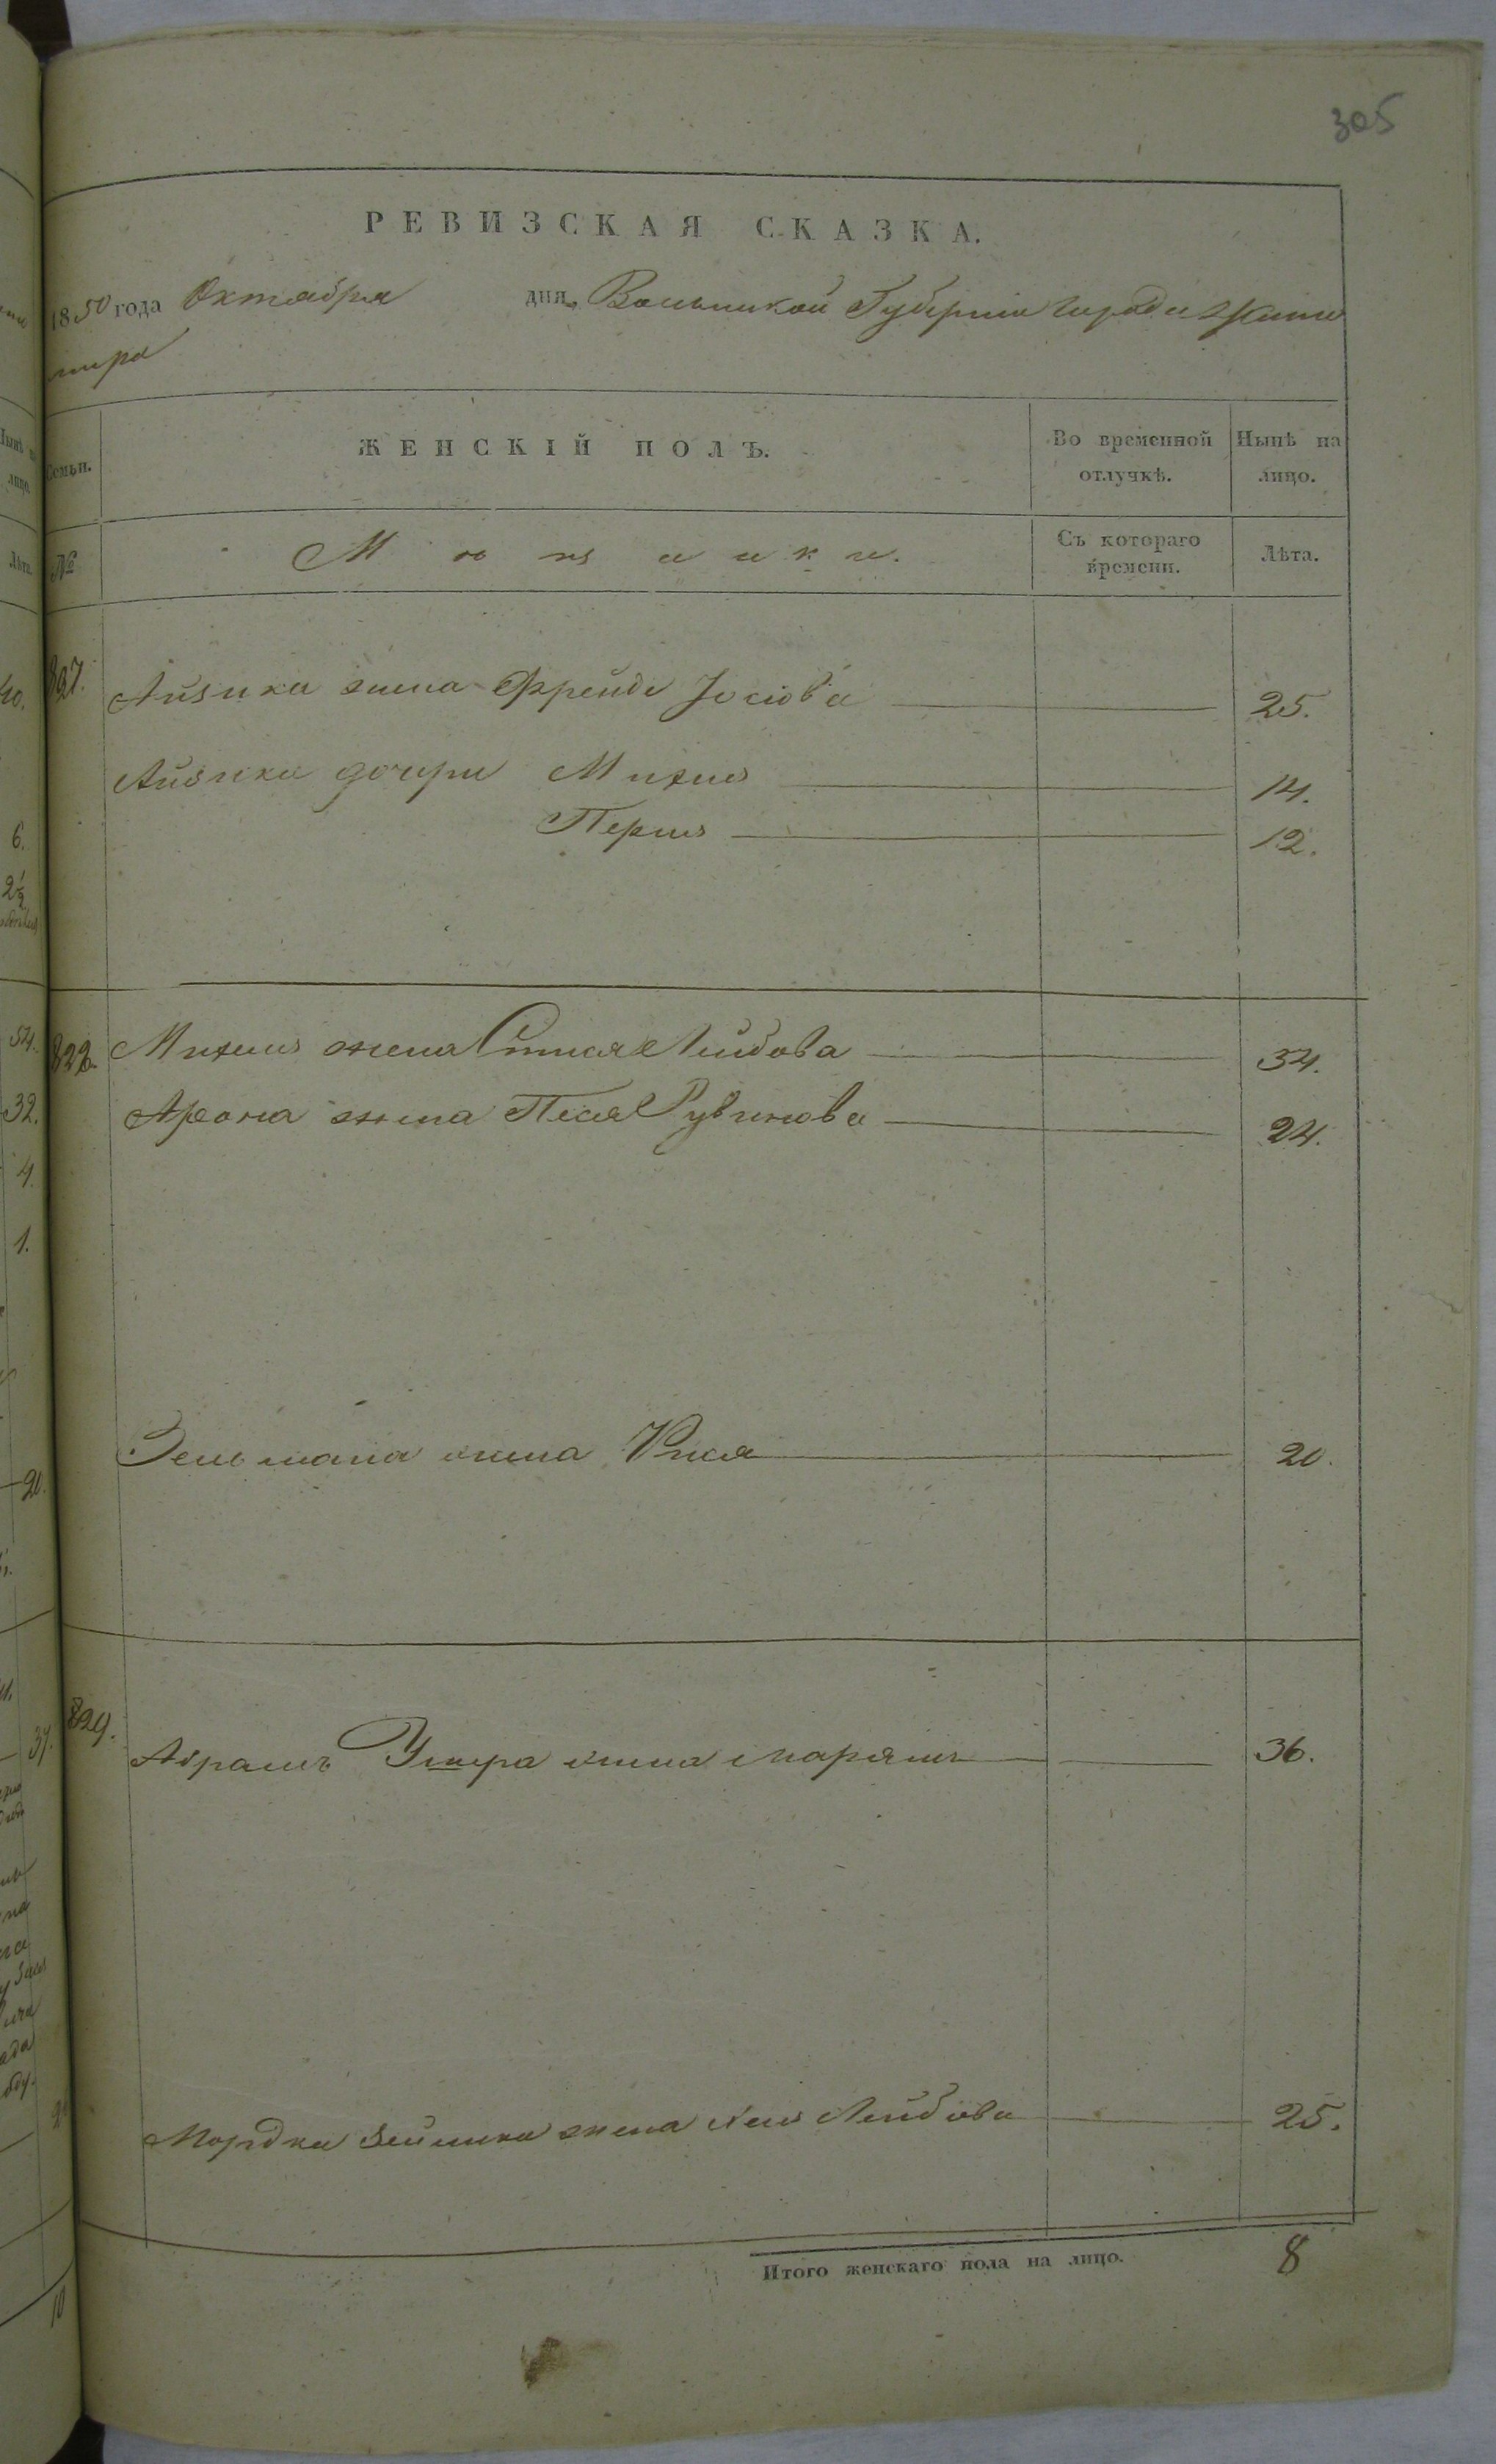 305
РЕВИЗСКАЯ СКАЗКА.
1850 года Октября дня Волынской Губерніи города Жито
мира
Семьи. ЖЕНСКІЙ ПОЛЪ. Во временной отлучкѣ. Нынѣ на лицо.
№ Мѣщанки. Съ котораго времени. Лѣта.
827. Айзика жена Фрейда Іосіова 25.
Айзика дочери Михля 14.
Перля 12.
828. Михля жена Лейбова 34.
Арона жена Песя Рувинова 24.
Зельмана жена Рися 20.
829. Абрамъ Ушера жена Марямъ 36.
Мордка Зейлика жена Лейбова 25.
Итого женскаго пола на лицо. 8